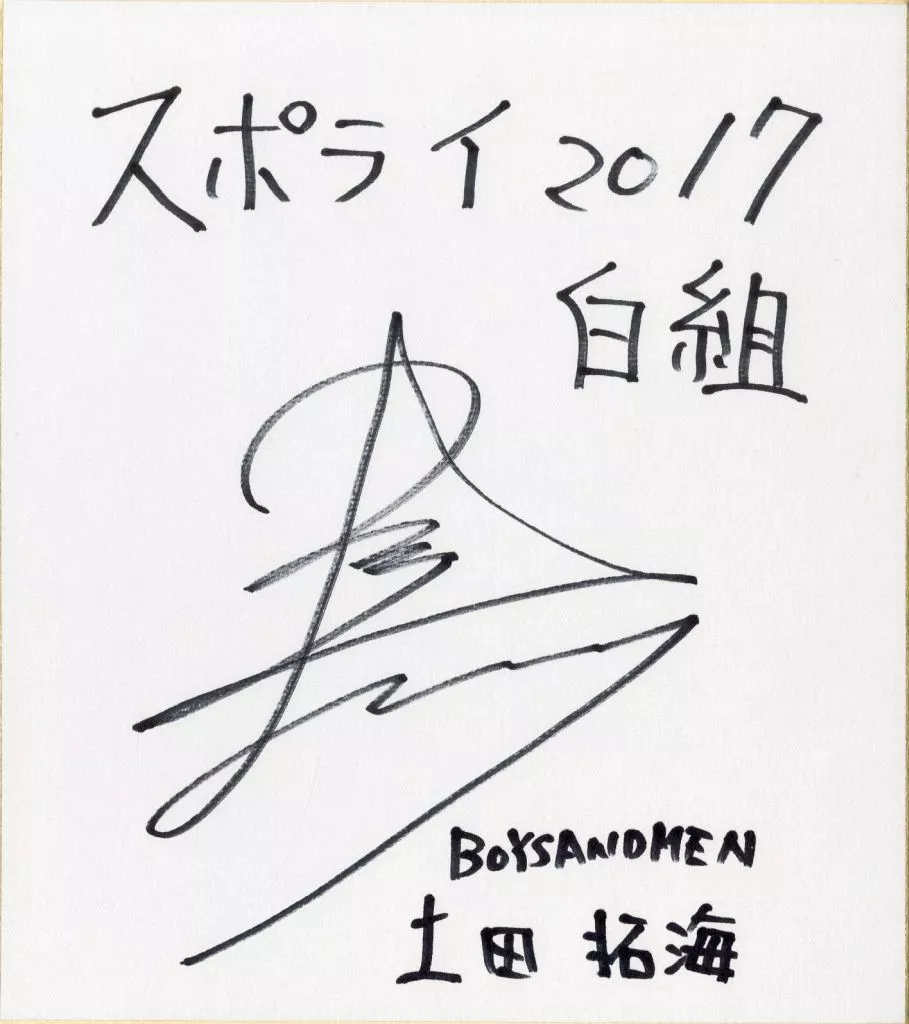 スポライ2017
白組
BOYSANDMEN
土田 拓海